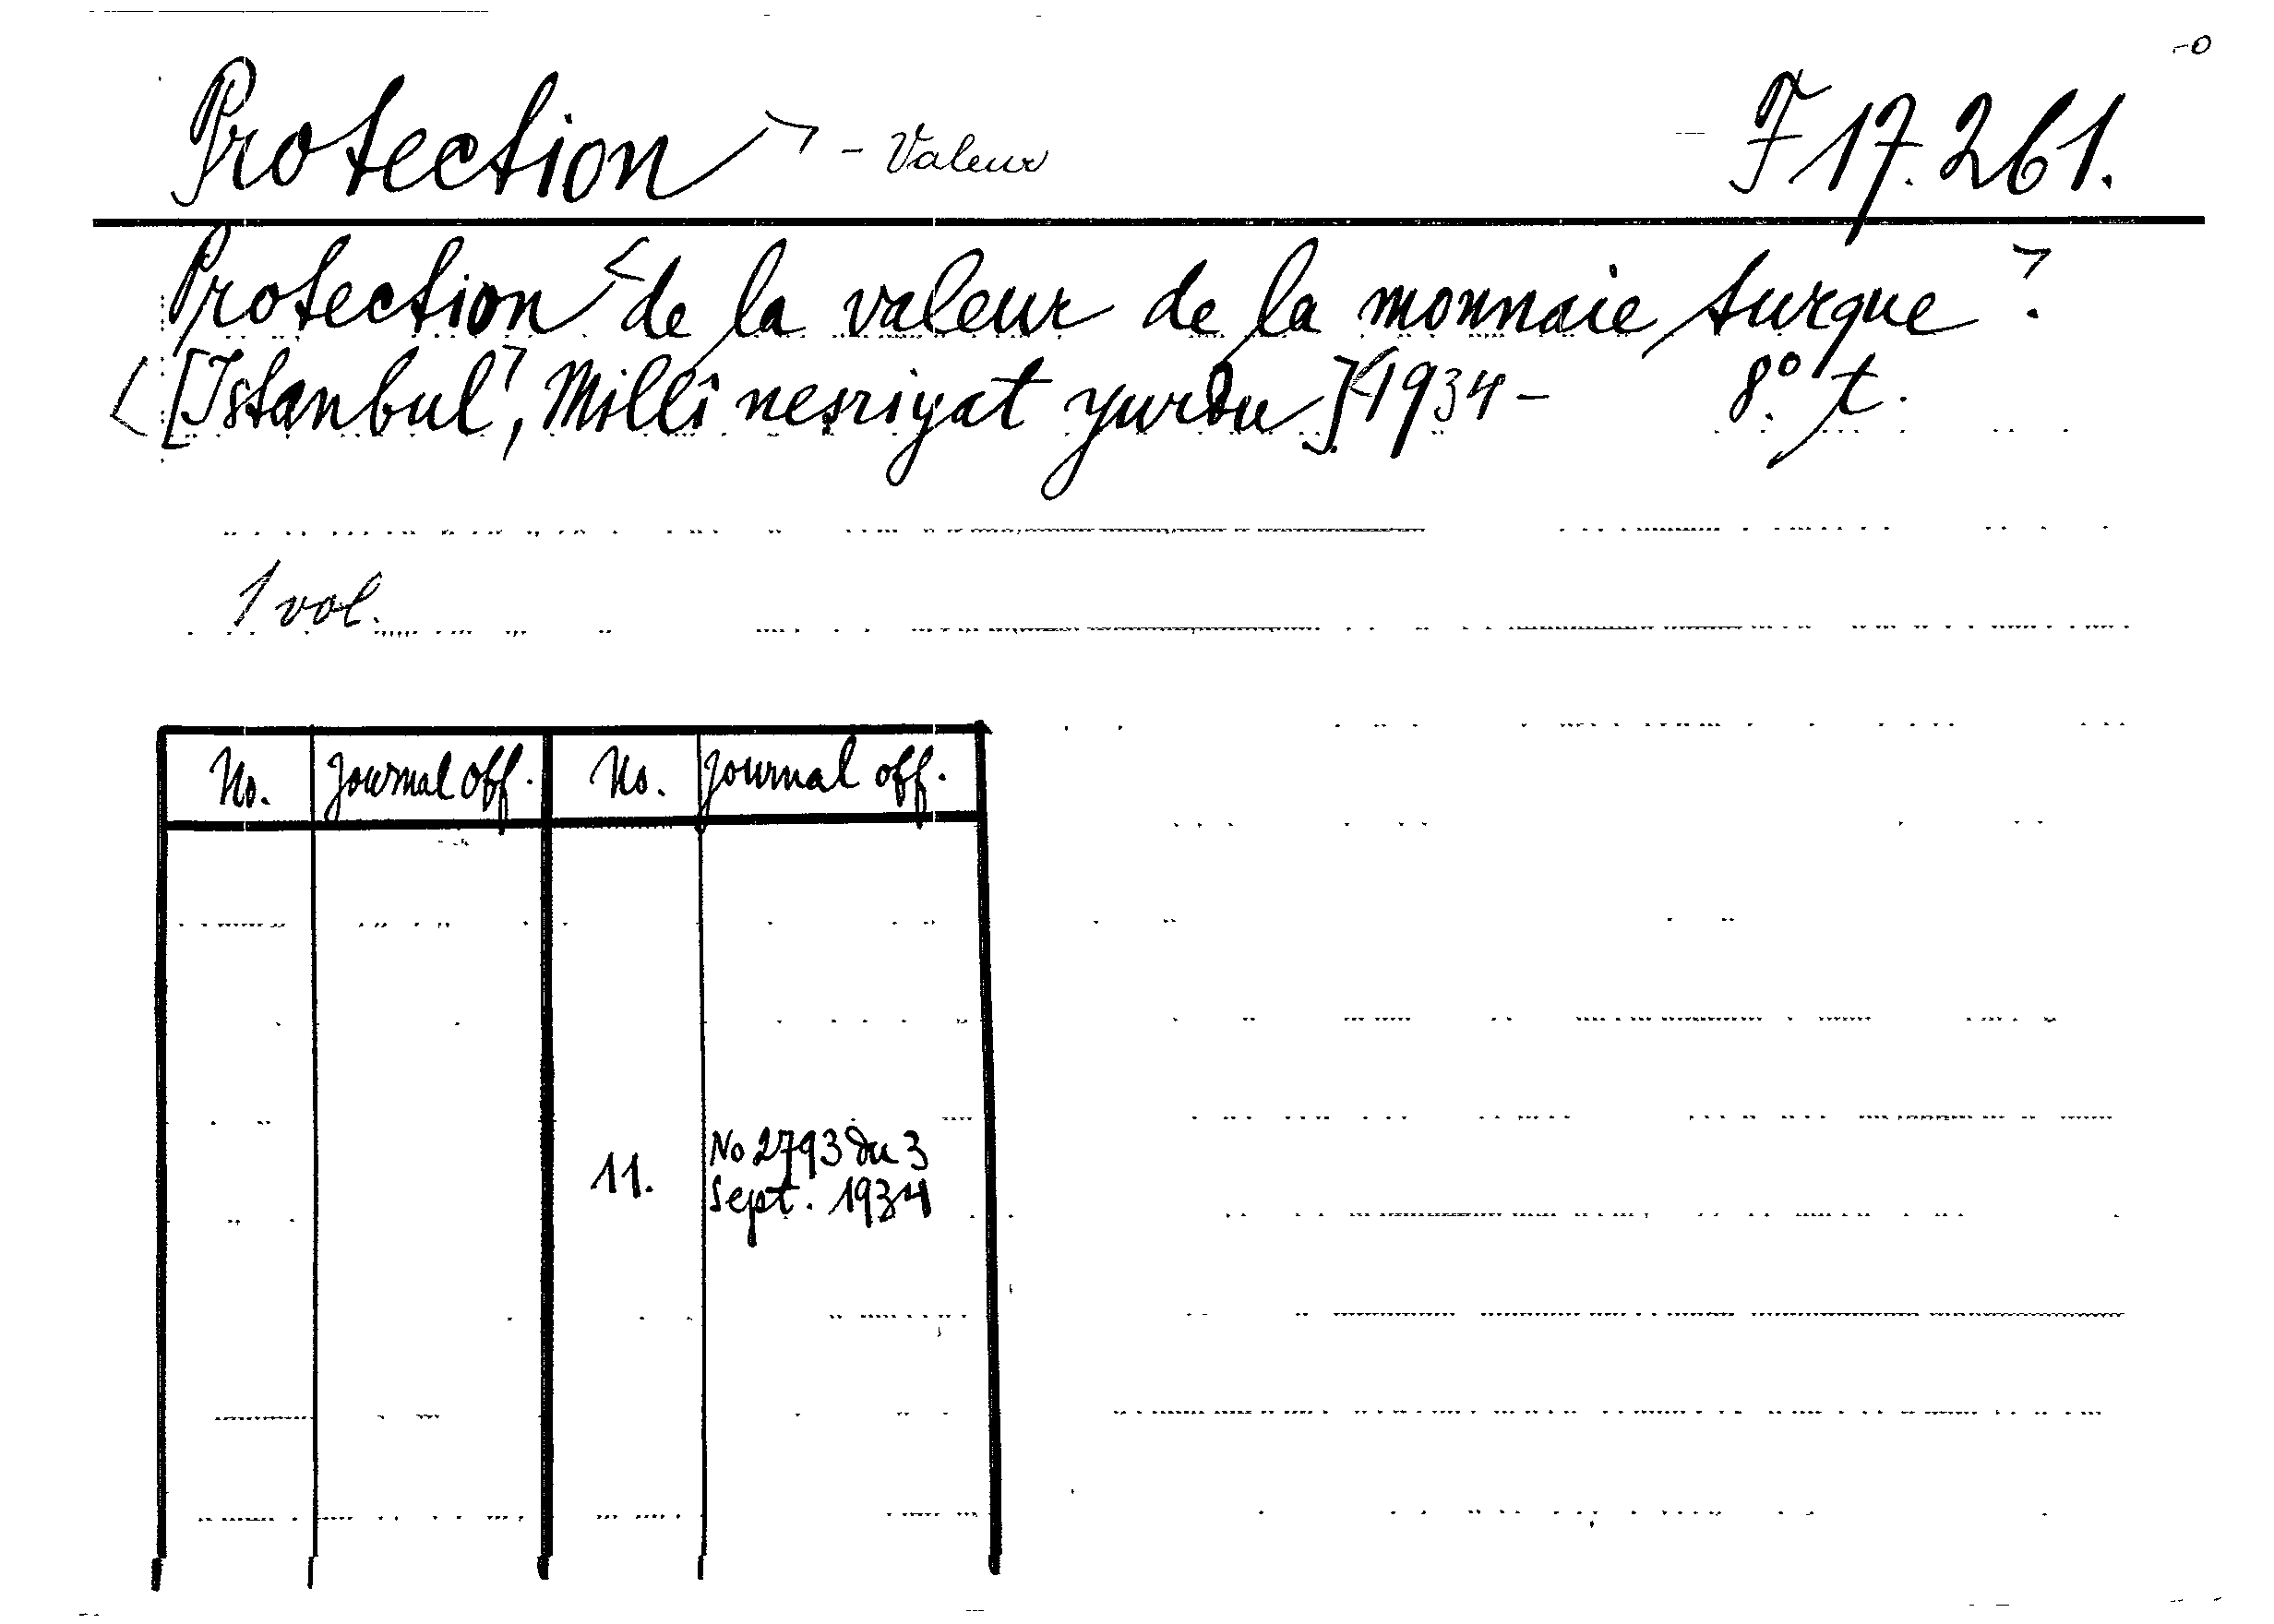 -0
Protection > - Valeur F 17.261.
Protection < de la valeur de la monnaie turque >.
<[Istanbul>, Millî neşriyat yurdu.]<1934- 8º. t.
1 vol.
No. Journal off. No. Journal off.
11. No 2793 du 3
Sept. 1934